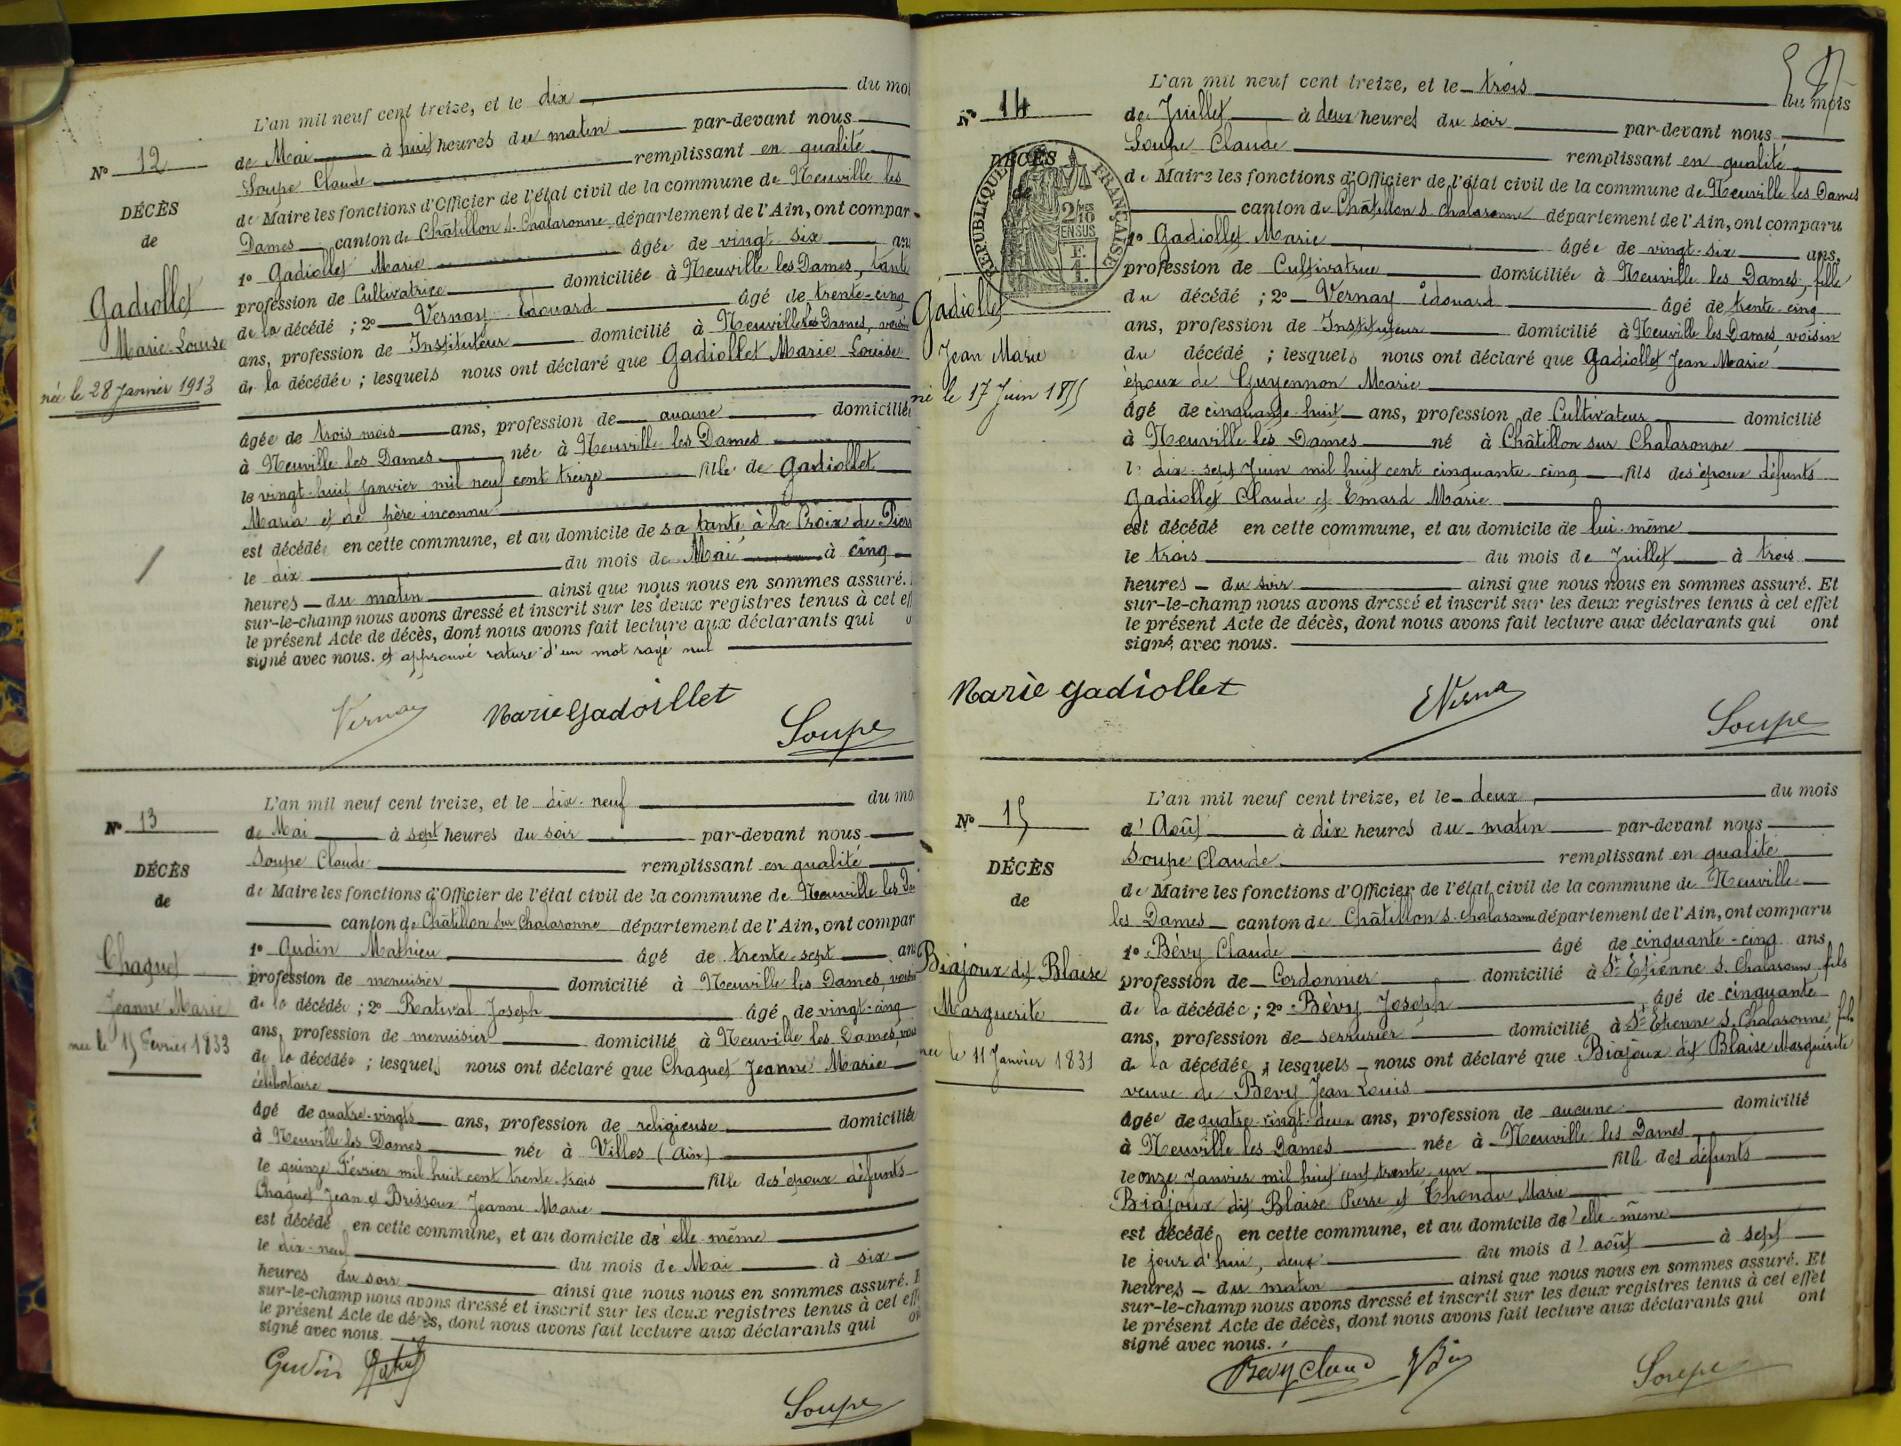 L'an mil neuf cent treize, et le dix du moi
N° 12
de Mai à huit heures du matin par-devant nous
Soupe Claude remplissant en qualité
DÉCÈS
de
de Maire les fonctions d'Officier de l'état civil de la commune de Neuville les
Dames canton de Châtillon s. Chalaronne département de l'Ain, ont compar
1° Gadiollet Marie âgée de vingt-six ans
Gadiollet
Marie Louise
née le 28 Janvier 1913
profession de Cultivatrice domiciliée à Neuville les Dames, tante
de la décédé ; 2° Vernay Edouard âgé de trente-cinq
ans, profession de Instituteur domicilié à Neuville les Dames, voisin
de la décédée ; lesquels nous ont déclaré que Gadiollet Marie Louise
âgée de trois mois ans, profession de aucune domiciliée
à Neuville les Dames née à Neuville les Dames
le vingt-huit janvier mil neuf cent treize fille de Gadiollet
Maria et de père inconnu
est décédé en cette commune, et au domicile de sa tante à la Croix de
le dix du mois de Mai à cinq
heures du matin ainsi que nous nous en sommes assuré.
sur-le-champ nous avons dressé et inscrit sur les deux registres tenus à cet eff
le présent Acte de décès, dont nous avons fait lecture aux déclarants qui o
signé avec nous. et approuvé rature d'un mot rayé nul
Vernay Marie Gadoillet
Soupe
L'an mil neuf cent treize, et le dix-neuf du mo
N° 13
de Mai à sept heures du soir par-devant nous
Soupe Claude remplissant en qualité
DÉCÈS
de
de Maire les fonctions d'Officier de l'état civil de la commune de Neuville les Da
canton de Châtillon sur Chalaronne département de l'Ain, ont compar
1° Gudin Mathieu âgé de trente-sept ans
Chaquet
Jeanne Marie
née le 15 Février 1833
profession de menuisier domicilié à Neuville les Dames, voisin
de la décédée ; 2° Rativat Joseph âgé de vingt-cinq
ans, profession de menuisier domicilié à Neuville les Dames, vois
de la décédée ; lesquels nous ont déclaré que Chaquet Jeanne Marie
célibataire
âgé de quatre-vingts ans, profession de religieuse domiciliée
à Neuville les Dames née à Villes (Ain)
le quinze Février mil huit cent trente-trois fille des époux défunts
Chaquet Jean et Brissoux Jeanne Marie
est décédé en cette commune, et au domicile d'elle-même
le dix-neuf du mois de Mai à six
heures du soir ainsi que nous nous en sommes assuré. E
sur-le-champ nous avons dressé et inscrit sur les deux registres tenus à cet eff
le présent Acte de décès, dont nous avons fait lecture aux déclarants qui on
signé avec nous.
Gudin
Soupe
L'an mil neuf cent treize, et le trois du mois
N° 14
de Juillet à deux heures du soir par-devant nous
Soupe Claude remplissant en qualité
DÉCÈS
de
RÉPUBLIQUE FRANÇAISE
2/10
EN SUS
de Maire les fonctions d'Officier de l'état civil de la commune de Neuville les Dames
canton de Châtillon s. Chalaronne département de l'Ain, ont comparu
1° Gadiollet Marie âgée de vingt-six ans,
profession de Cultivatrice domiciliée à Neuville les Dames, fille
Gadiollet
Jean Marie
né le 17 Juin 1855
du décédé ; 2° Vernay Edouard âgé de trente-cinq
ans, profession de Instituteur domicilié à Neuville les Dames voisin
du décédé ; lesquels nous ont déclaré que Gadiollet Jean Marie
époux de Guyennon Marie
âgé de cinquante-huit ans, profession de Cultivateur domicilié
à Neuville les Dames né à Châtillon sur Chalaronne
le dix-sept Juin mil huit cent cinquante-cinq fils des époux défunts
Gadiollet Claude et Emard Marie
est décédé en cette commune, et au domicile de lui-même
le trois du mois de Juillet à trois
heures du soir ainsi que nous nous en sommes assuré. Et
sur-le-champ nous avons dressé et inscrit sur les deux registres tenus à cet effet
le présent Acte de décès, dont nous avons fait lecture aux déclarants qui ont
signé avec nous.
Marie Gadiollet EVerna
Soupe
L'an mil neuf cent treize, et le deux du mois
N° 15
d'Août à dix heures du matin par-devant nous
Soupe Claude remplissant en qualité
DÉCÈS
de
de Maire les fonctions d'Officier de l'état civil de la commune de Neuville
les Dames canton de Châtillon s. Chalaronne département de l'Ain, ont comparu
1° Bévy Claude âgé de cinquante-cinq ans,
Biajoux dit Blaise
Marguerite
née le 11 Janvier 1831
profession de Cordonnier domicilié à St Etienne s. Chalaronne fils
de la décédée ; 2° Bévy Joseph âgé de cinquante
ans, profession de serrurier domicilié à St Etienne s. Chalaronne fils
de la décédée ; lesquels nous ont déclaré que Biajoux dit Blaise Marguerite
veuve de Bevy Jean Louis
âgée de quatre-vingt-deux ans, profession de aucune domicilié
à Neuville les Dames née à Neuville les Dames
le onze Janvier mil huit cent trente-un fille des défunts
Biajoux dit Blaise Pierre et Thondu Marie
est décédé en cette commune, et au domicile d'elle-même
le jour d'hui, deux du mois d'août à sept
heures du matin ainsi que nous nous en sommes assuré. Et
sur-le-champ nous avons dressé et inscrit sur les deux registres tenus à cet effet
le présent Acte de décès, dont nous avons fait lecture aux déclarants qui ont
signé avec nous.
Bevy Claude
Soupe